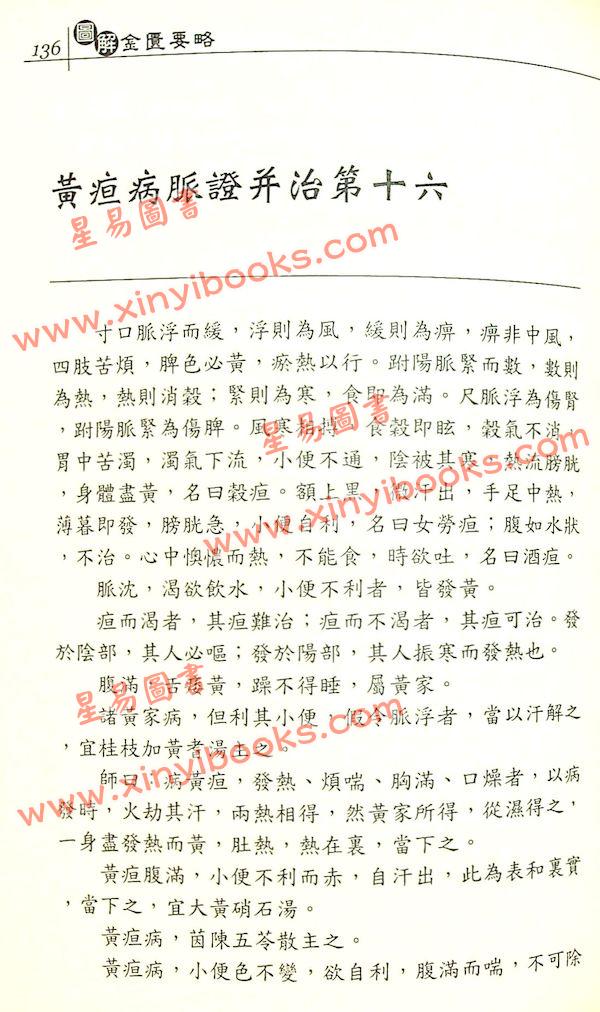 136 圖解金匱要略
黃疸病脈證并治第十六
星易圖書
www.xinyibooks.com
寸口脈浮而緩，浮則為風，緩則為痹，痹非中風，
四肢苦煩，脾色必黃，瘀熱以行。跗陽脈緊而數，數則
為熱，熱則消穀；緊則為寒，食即為滿。尺脈浮為傷腎
，跗陽脈緊為傷脾。風寒相搏，食穀即眩，穀氣不消，
胃中苦濁，濁氣下流，小便不通，陰被其寒，熱流膀胱
，身體盡黃，名曰穀疸。額上黑，微汗出，手足中熱，
薄暮即發，膀胱急，小便自利，名曰女勞疸；腹如水狀
，不治。心中懊憹而熱，不能食，時欲吐，名曰酒疸。
脈沈，渴欲飲水，小便不利者，皆發黃。
疸而渴者，其疸難治；疸而不渴者，其疸可治。發
於陰部，其人必嘔；發於陽部，其人振寒而發熱也。
腹滿，舌痿黃，躁不得睡，屬黃家。
諸黃家病，但利其小便，假令脈浮者，當以汗解之
，宜桂枝加黃耆湯主之。
師曰：病黃疸，發熱、煩喘、胸滿、口燥者，以病
發時，火劫其汗，兩熱相得，然黃家所得，從濕得之，
一身盡發熱而黃，肚熱，熱在裏，當下之。
黃疸腹滿，小便不利而赤，自汗出，此為表和裏實
，當下之，宜大黃硝石湯。
黃疸病，茵陳五苓散主之。
黃疸病，小便色不變，欲自利，腹滿而喘，不可除
星易圖書
www.xinyibooks.com
星易圖書
www.xinyibooks.com